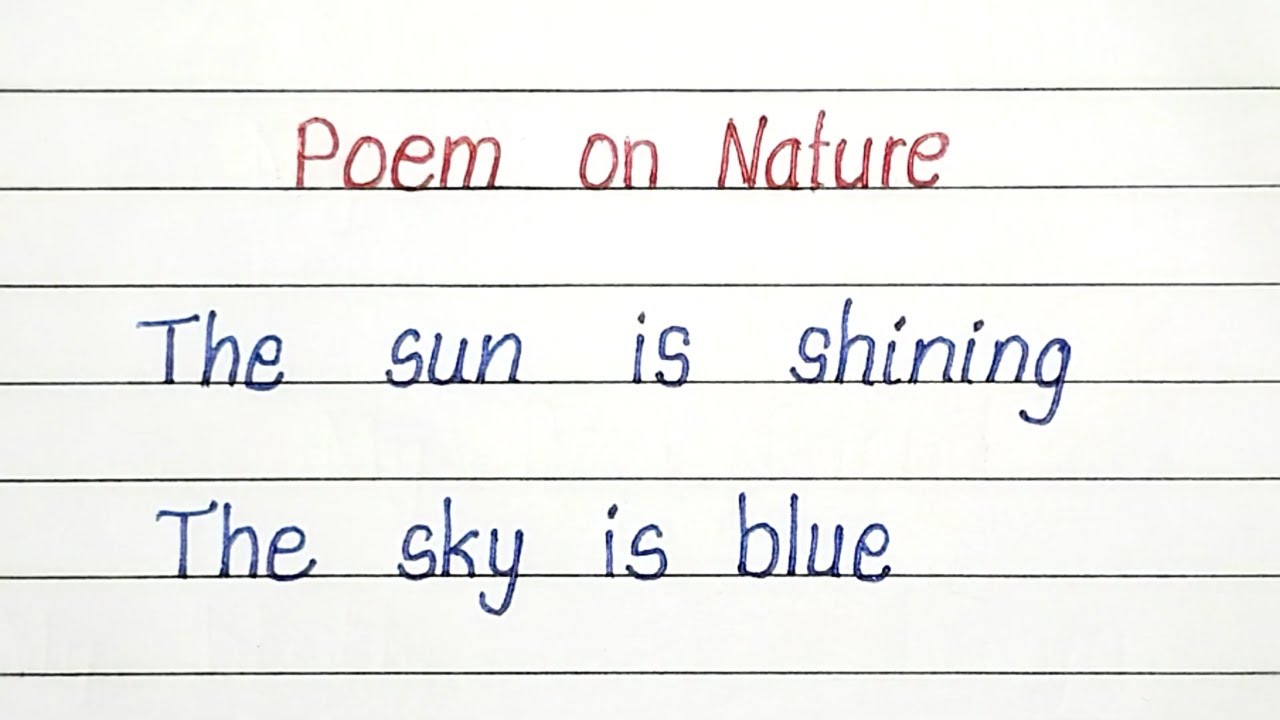 Poem on Nature
The sun is shining
The sky is blue